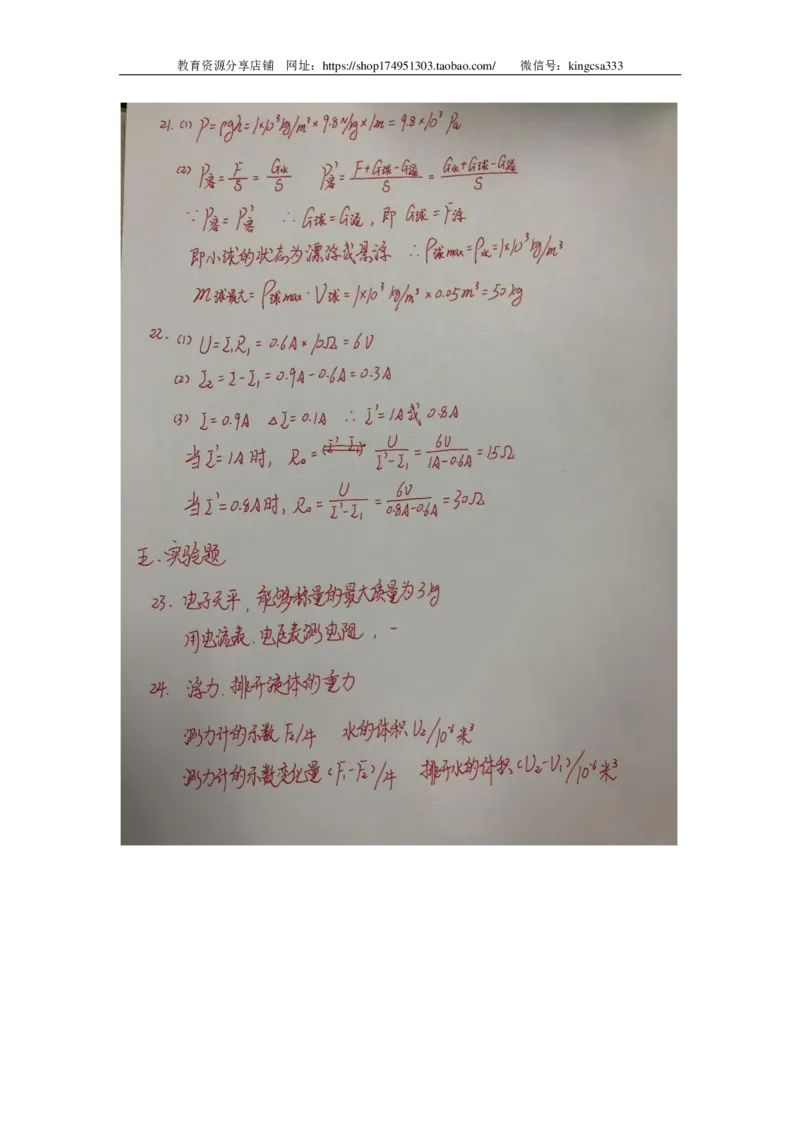 教育资源分享店铺 网址：https://shop174951303.taobao.com/ 微信号：kingcsa333
21.(1) P=ρgh=1×10³kg/m³×9.8N/kg×1m=9.8×10³Pa
(2) P容=F/S=G水/S P容'=(F+G球-G溢)/S=(G水+G球-G溢)/S
∵P容=P容' ∴G球=G溢，即G球=F浮
即小球的状态为漂浮或悬浮 ∴ρ球max=ρ水=1×10³kg/m³
m球最大=ρ球max·V球=1×10³kg/m³×0.05m³=50kg
22.(1) U=I₁R₁=0.6A×10Ω=6V
(2) I₂=I-I₁=0.9A-0.6A=0.3A
(3) I=0.9A △I=0.1A ∴I'=1A或0.8A
当I'=1A时，R₀=U/(I'-I₁)=6V/(1A-0.6A)=15Ω
当I'=0.8A时，R₀=U/(I'-I₁)=6V/(0.8A-0.6A)=30Ω
五.实验题
23.电子天平，能够称量的最大质量为3kg
用电流表、电压表测电阻，一
24.浮力、排开液体的重力
测力计的示数F₂/牛 水的体积V₂/10⁻⁶米³
测力计的示数变化量(F₁-F₂)/牛 排开水的体积(V₂-V₁)/10⁻⁶米³